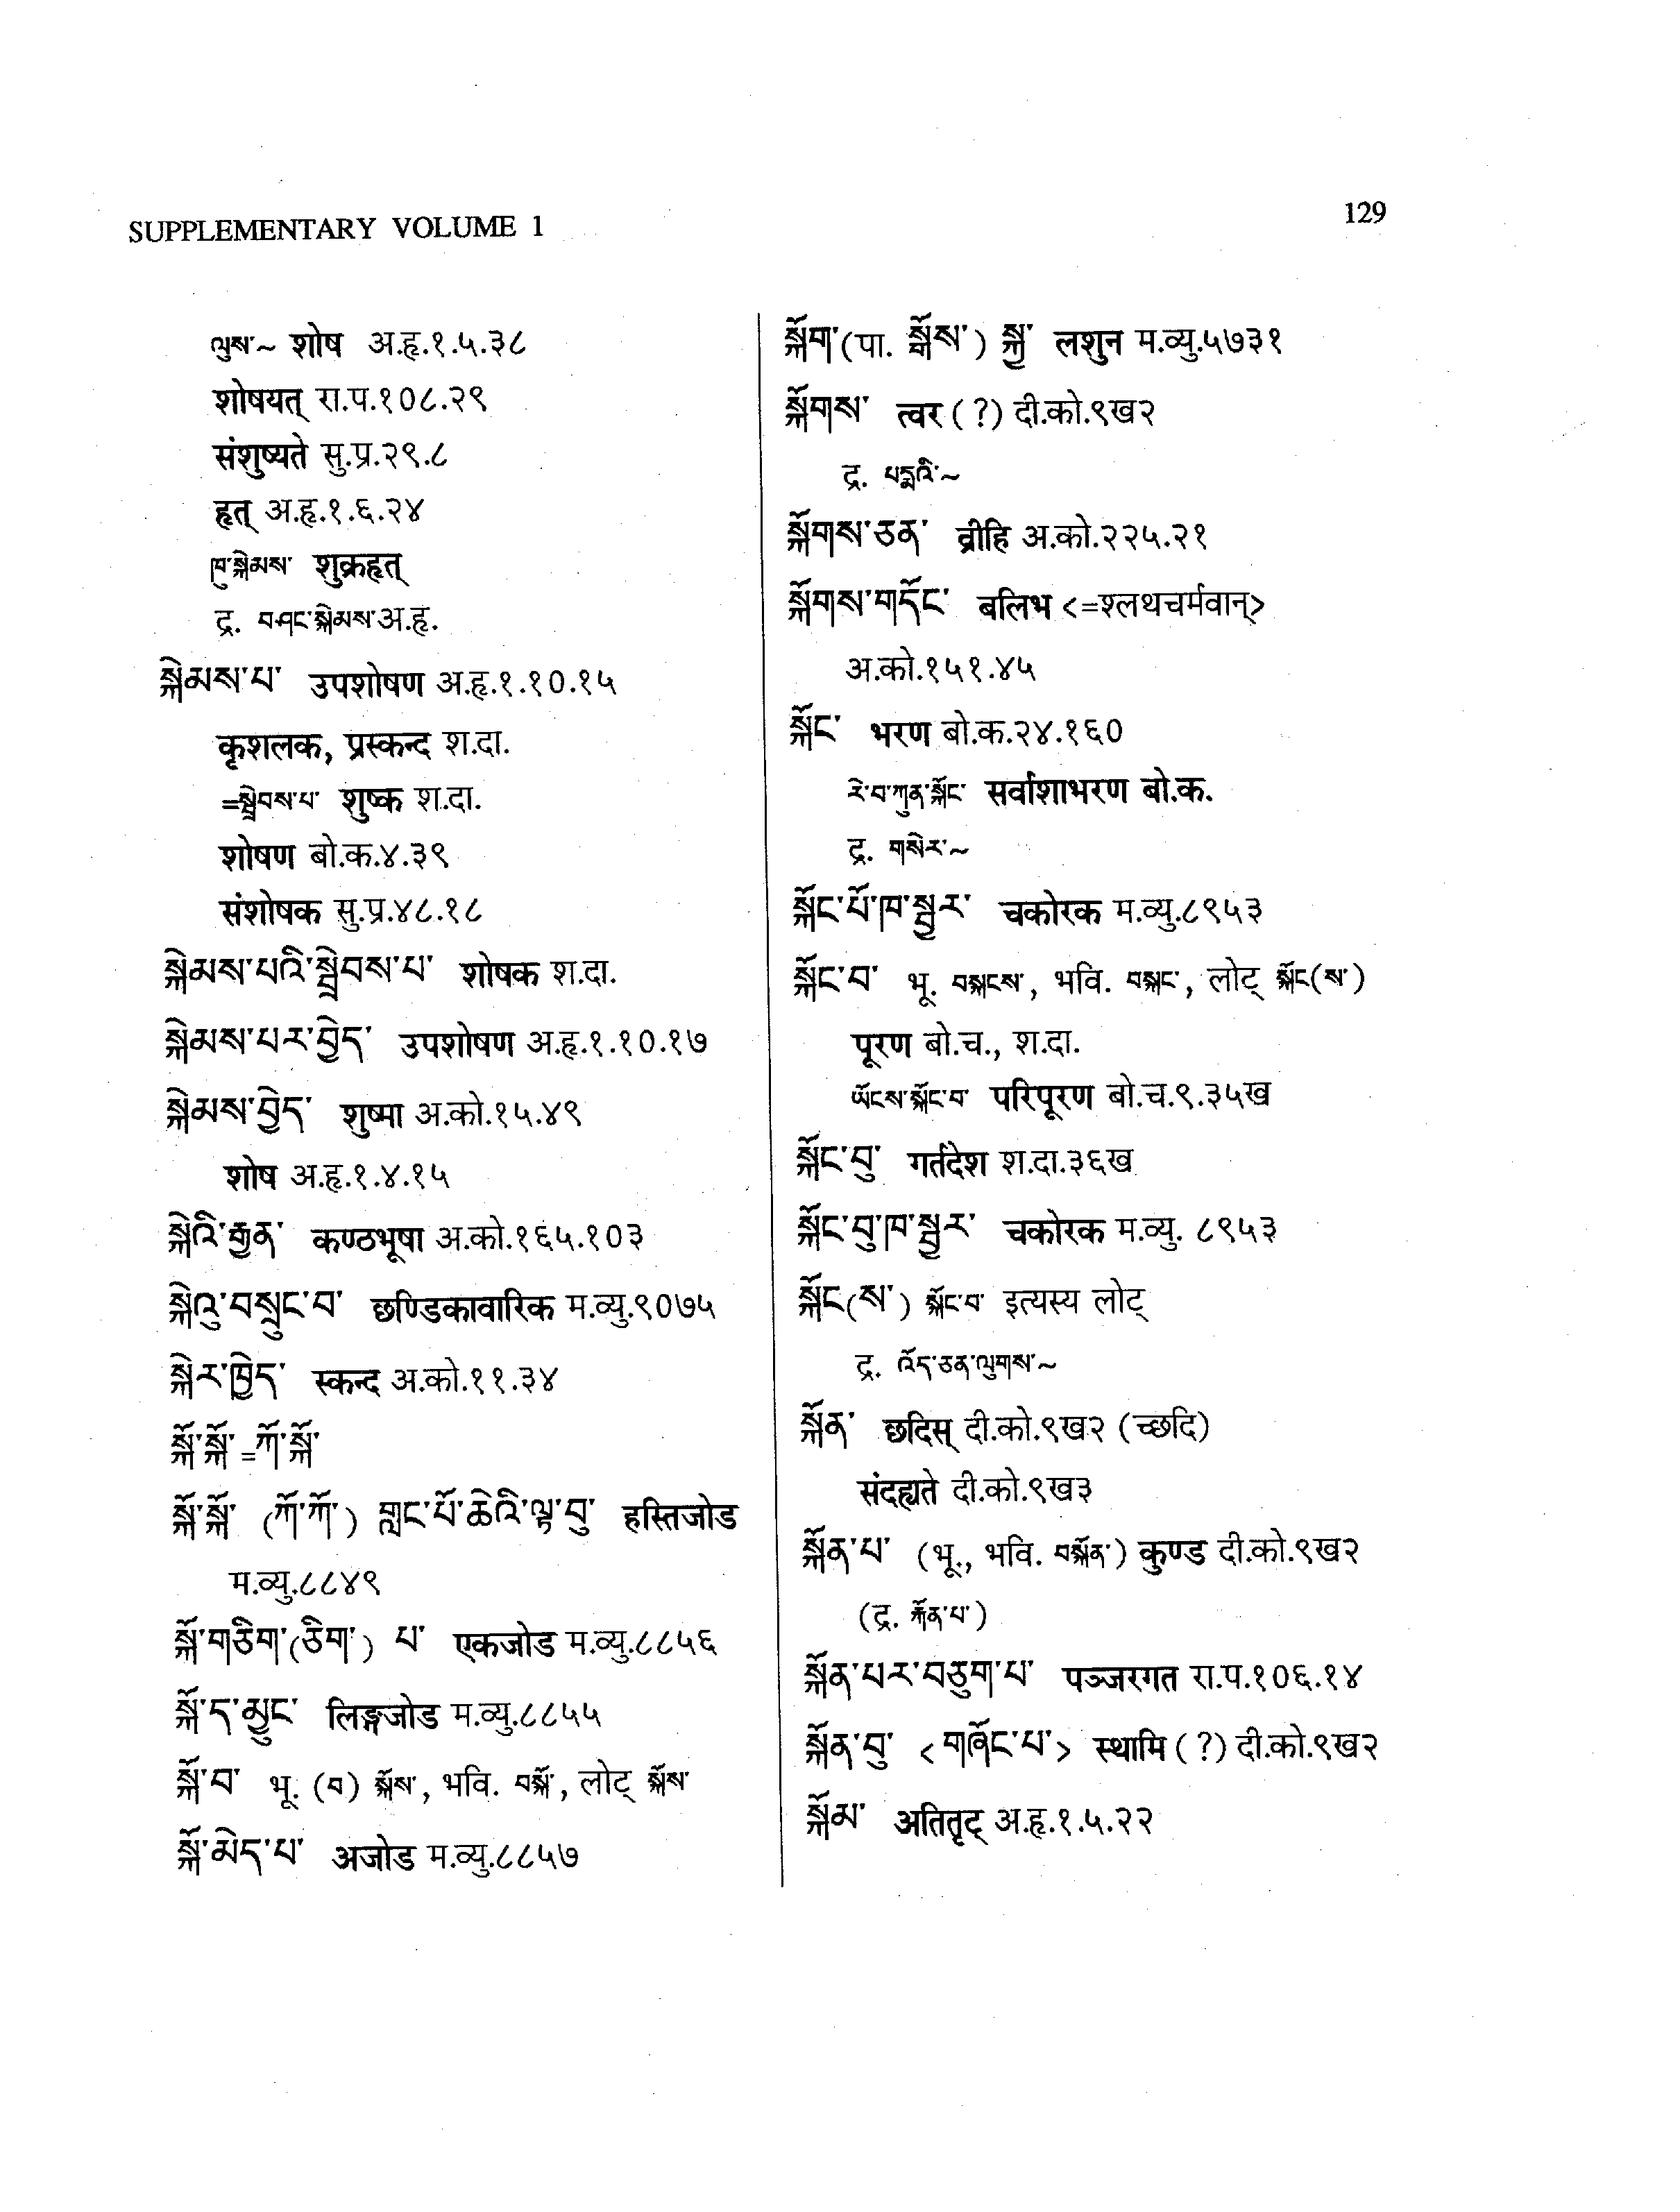 SUPPLEMENTARY VOLUME 1
129
ལུས་~ शोष अ.हृ.१.५.३८
शोषयत् रा.प.१०८.२९
संशुष्यते सु.प्र.२९.८
हृत् अ.हृ.१.६.२४
ཁུ་སྐེམས་ शुक्रहृत्
द्र. བཤང་སྐེམས་ अ.हृ.
སྐེམས་པ་ उपशोषण अ.हृ.१.१०.१५
कृशलक, प्रस्कन्द श.दा.
=སྦྲེབས་པ་ शुष्क श.दा.
शोषण बो.क.४.३९
संशोषक सु.प्र.४८.१८
སྐེམས་པའི་སྦྲེབས་པ་ शोषक श.दा.
སྐེམས་པར་བྱེད་ उपशोषण अ.हृ.१.१०.१७
སྐེམས་བྱེད་ शुष्मा अ.को.१५.४९
शोष अ.हृ.१.४.१५
སྐེའི་རྒྱན་ कण्ठभूषा अ.को.१६५.१०३
སྐེའུ་བསྲུང་བ་ छण्डिकावारिक म.व्यु.९०७५
སྐེར་ཁྱེད་ स्कन्द अ.को.११.३४
སྐོ་སྐོ་=ཀོ་སྐོ་
སྐོ་སྐོ་ (ཀོ་ཀོ་) གླང་པོ་ཆེའི་ལྟ་བུ་ हस्तिजोड
म.व्यु.८८४९
སྐོ་གཅིག་(ཅིག་) པ་ एकजोड म.व्यु.८८५६
སྐོ་ད་མྱུང་ लिङ्गजोड म.व्यु.८८५५
སྐོ་བ་ भू. (བ) སྐོས་, भवि. བསྐོ་, लोट् སྐོས་
སྐོ་མེད་པ་ अजोड म.व्यु.८८५७
སྐོག་(पा. སྒོས་) སྐྱ་ लशुन म.व्यु.५७३१
སྐོགས་ त्वर (?) दी.को.९ख२
द्र. པདྨའི་~
སྐོགས་ཅན་ व्रीहि अ.को.२२५.२१
སྐོགས་གདོང་ बलिभ <=श्लथचर्मवान्>
अ.को.१५१.४५
སྐོང་ भरण बो.क.२४.१६०
རེ་བ་ཀུན་སྐོང་ सर्वाशाभरण बो.क.
द्र. གསེར་~
སྐོང་པོ་ཁ་སྦྱར་ चकोरक म.व्यु.८९५३
སྐོང་བ་ भू. བསྐངས་, भवि. བསྐང་, लोट् སྐོང(ས་)
पूरण बो.च., श.दा.
ཡོངས་སྐོང་བ་ परिपूरण बो.च.९.३५ख
སྐོང་བུ་ गर्तदेश श.दा.३६ख
སྐོང་བུ་ཁ་སྦྱར་ चकोरक म.व्यु. ८९५३
སྐོང(ས་) སྐོང་བ་ इत्यस्य लोट्
द्र. འོད་ཅན་ལུགས་~
སྐོན་ छदिस् दी.को.९ख२ (च्छदि)
संदह्यते दी.को.९ख३
སྐོན་པ་ (भू., भवि. བསྐོན་) कुण्ड दी.को.९ख२
(द्र. རྐོན་པ་)
སྐོན་པར་བཅུག་པ་ पञ्जरगत रा.प.१०६.१४
སྐོན་བུ་ <གཞོང་པ་> स्थामि (?) दी.को.९ख२
སྐོམ་ अतितृट् अ.हृ.१.५.२२